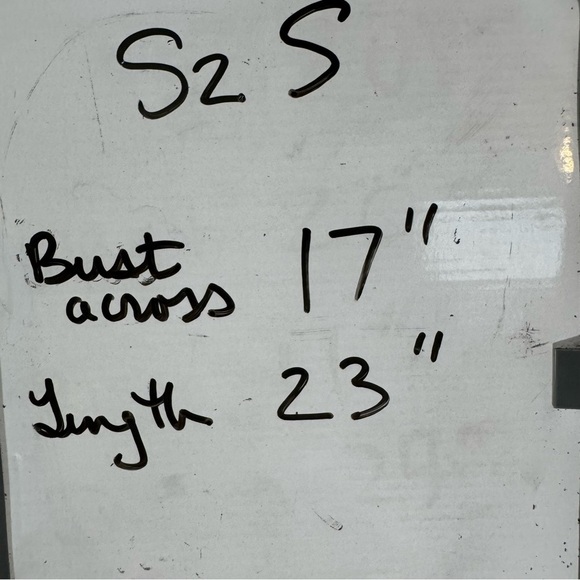 Sz S
Bust across 17"
Length 23"